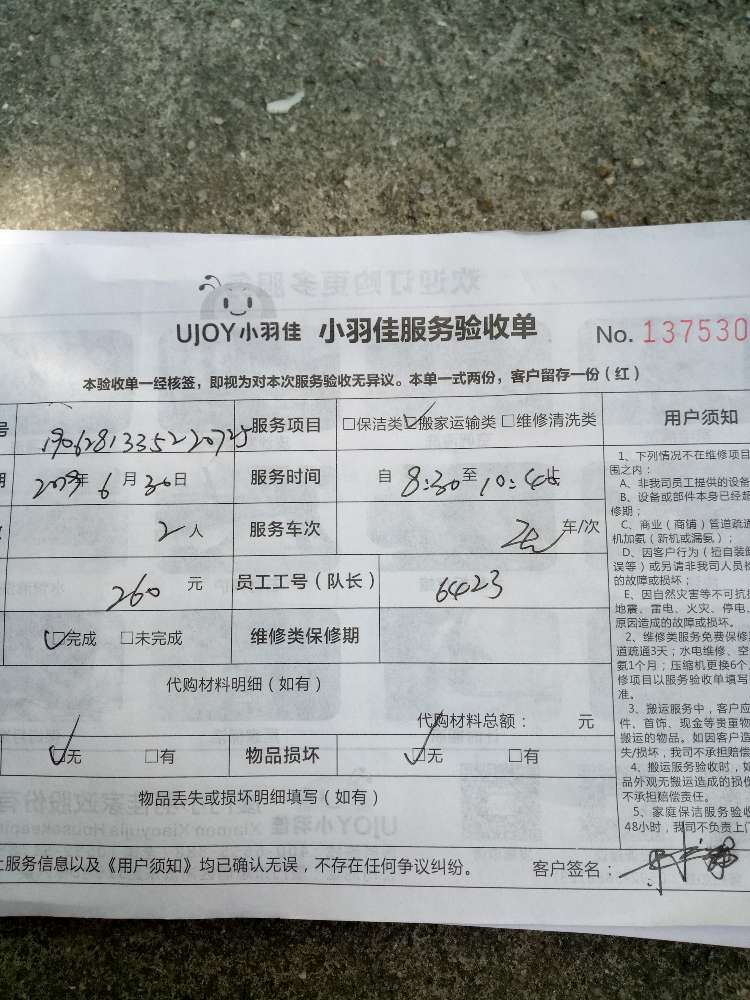 UJOY小羽佳 小羽佳服务验收单 No. 137530
本验收单一经核签，即视为对本次服务验收无异议。本单一式两份，客户留存一份（红）
号 服务项目 □保洁类 ☑搬家运输类 □维修清洗类
期 2019年6月30日 服务时间 自 8:30至10:40止
2人 服务车次 车/次
260元 员工工号（队长） 6423
☑完成 □未完成 维修类保修期
代购材料明细（如有）
代购材料总额： 元
☑无 □有 物品损坏 ☑无 □有
物品丢失或损坏明细填写（如有）
上服务信息以及《用户须知》均已确认无误，不存在任何争议纠纷。 客户签名：
用户须知
1、下列情况不在维修项目
围之内：
A、非我司员工提供的设备
B、设备或部件本身已经超
修期；
C、商业（商铺）管道疏通
机加氨（新机或漏氨）；
D、因客户行为（擅自装卸
误等）或另请非我司人员检
的故障或损坏；
E、因自然灾害等不可抗拒
地震、雷电、火灾、停电、
原因造成的故障或损坏。
2、维修类服务免费保修
道疏通3天；水电维修、空
氨1个月；压缩机更换6个
修项目以服务验收单填写
准。
3、搬运服务中，客户应
件、首饰、现金等贵重物
搬运的物品。如因客户造
失/损坏，我司不承担赔偿
4、搬运服务验收时，如
品外观无搬运造成的损伤
不承担赔偿责任。
5、家庭保洁服务验收
48小时，我司不负责上门